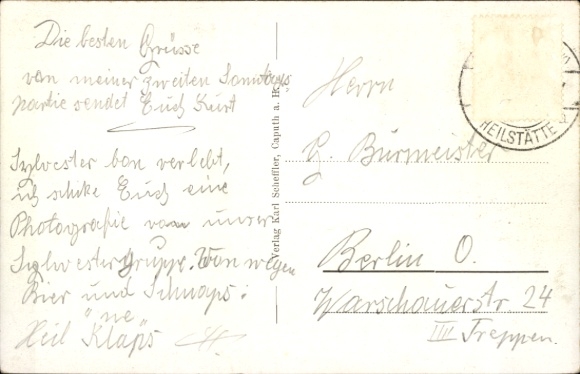 Die besten Grüsse
von meiner zweiten Sonntags
partie sendet Euch Kurt
Sylvester bon verlebt,
ich schike Euch eine
Photografie von unsrer
Sylvestergrupp. Von wegen
Bier und Schnaps:
"ne"
Heil Klaps
Verlag Karl Scheffler, Caputh a. H.
HEILSTÄTTE
Herrn
Burmeister
Berlin O.
Warschauerstr. 24
IIII Treppen.